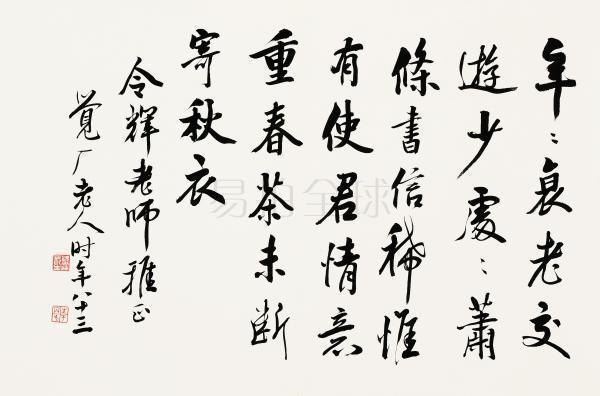 年〻衰老交
遊少處〻蕭
條書信稀惟
有使君情意
重春茶未斷
寄秋衣
令輝老師雅正
覺厂老人时年八十三
易拍全球